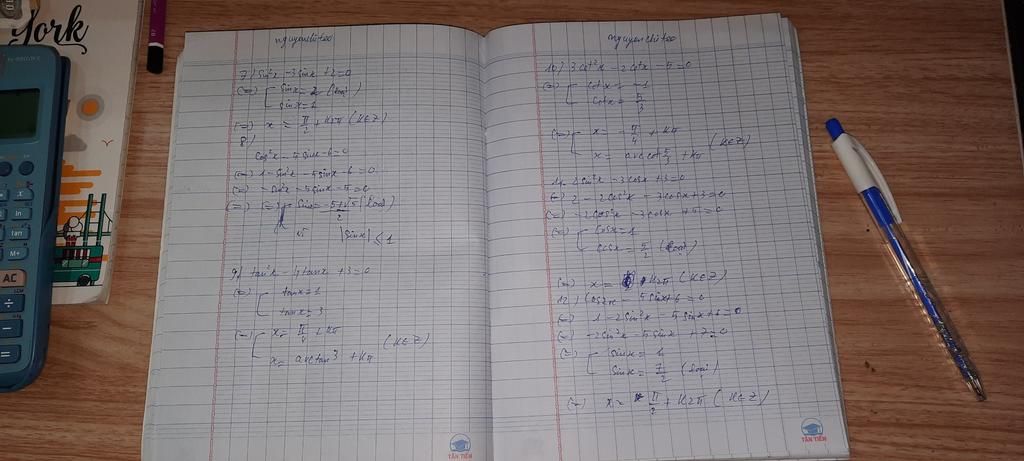 York
AC
M+
ln
÷
−
=
nguyenchiteo
7) sin²x - 3sinx + 2 = 0
(=) [ sinx = 2 (loại)
sinx = 1
(=) x = π/2 + k2π (k∈Z)
8)
cos²x - 5sinx - 6 = 0
(=) 1 - sin²x - 5sinx - 6 = 0
(=) -sin²x - 5sinx - 5 = 0
(=) sinx = (-5+√5)/2 (loại)
vì |sinx| ≤ 1
9) tan²x - 4tanx + 3 = 0
(=) [ tanx = 1
tanx = 3
(=) [ x = π/4 + kπ
x = arctan3 + kπ (k∈Z)
TÂN TIẾN
nguyenchiteo
10) 3cot²x - 2cotx - 5 = 0
(=) [ cotx = -1
cotx = 5/3
(=) [ x = -π/4 + kπ
x = arccot 5/3 + kπ (k∈Z)
11. 2sin²x - 3cosx + 3 = 0
(=) 2 - 2cos²x - 3cosx + 3 = 0
(=) -2cos²x - 3cosx + 5 = 0
(=) [ cosx = 1
cosx = 5/2 (loại)
(=) x = k2π (k∈Z)
12) cos2x - 5sinx + 6 = 0
(=) 1 - 2sin²x - 5sinx + 6 = 0
(=) -2sin²x - 5sinx + 7 = 0
(=) [ sinx = 1
sinx = 7/2 (loại)
(=) x = π/2 + k2π (k∈Z)
TÂN TIẾN